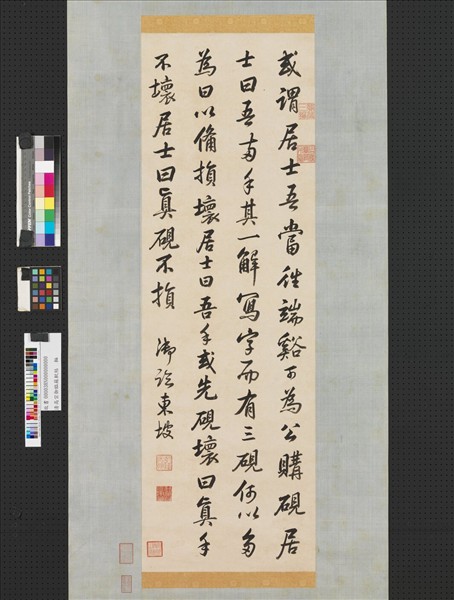 或謂居士吾當往端谿可為公購硯居
士曰吾两手其一解寫字而有三硯何以多
為曰以備損壞居士曰吾手或先硯壞曰眞手
不壞居士曰眞硯不損
御臨東坡